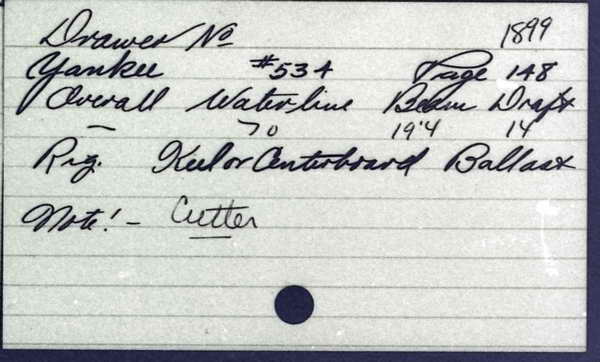 Drawer No 1899
Yankee #534 Page 148
Overall Waterline Beam Draft
— 70 19'4 14
Rig. Keel or Centerboard Ballast
Note! - Cutter